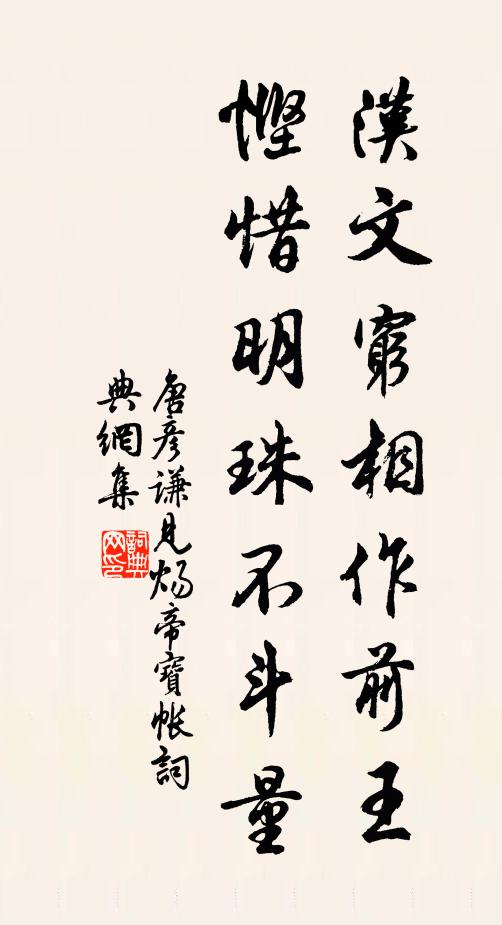 漢文窮相作前王
慳惜明珠不斗量
唐彥謙見煬帝寶帳詞
典網集
詞典
网印